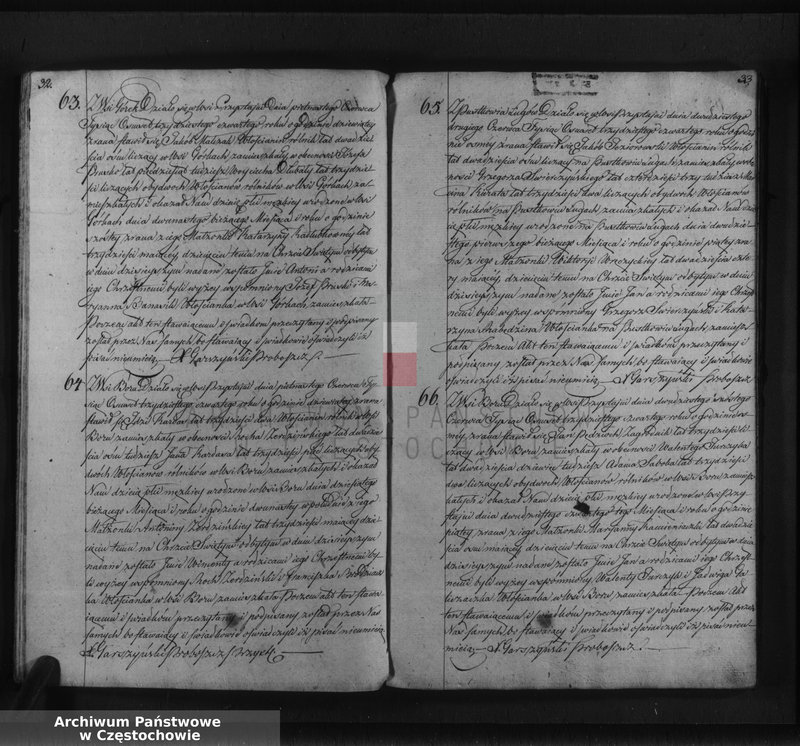 32.
63. Z Wsi Górek Działo się w Wsi Przystajni Dnia piętnastego Czerwca
Tysiąc Osmset trzydziestego czwartego roku o godzinie dziewiątej
zrana stawił się Jakób Włościanin rolnik lat dwadzie
scia ośm liczący w Wsi Górkach zamieszkały w obecności Józefa
lat pięćdziesiąt tudzież Woyciecha lat trzydzie
sci liczących obydwóch Włościanów rolników w Wsi Górkach za
mieszkałych i okazał Nam dziecie płci męzkiey urodzone w Wsi
Górkach dnia dwunastego bieżącego Miesiąca i roku o godzinie
szóstey zrana z iego Małżonki Katarzyny lat
trzydzieści maiącey, dziecięciu temu na Chrzcie Świętym odbytym
w dniu dzisieyszym nadane zostało Jmie Antoni a rodzicami
iego Chrzestnemi byli wyżey wspomniony Józef i Ma
ryanna Włościanka w Wsi Górkach zamieszkała
Poczem akt ten stawaiącemu i świadkom przeczytany i podpisany
został przez Nas samych bo stawaiący i świadkowie oświadczyli iż
pisać nieumieią. X Garszyński Proboszcz
64. Z Wsi Boru Działo się w Wsi Przystajni dnia piętnastego Czerwca Ty
siąc Osmset trzydziestego czwartego roku o godzinie dziewiątey zrana
stawił się lat trzydzieści dwa Włościanin rolnik w Wsi
Boru zamieszkały w obecności Rocha lat dwadzie
scia ośm tudzież lat trzydzieści pięć liczących oby
dwóch Włościanów rolników w Wsi Boru zamieszkałych i okazał
Nam dziecie płci męzkiey urodzone w Wsi Boru dnia dziesiątego
bieżącego Miesiąca i roku o godzinie dwunastey w południe z iego
Małżonki Antoniny lat trzydzieści maiącey dzie
cięciu temu na Chrzcie Świętym odbytym w dniu dzisieyszym
nadane zostało Jmie a rodzicami iego Chrzestnemi by
li wyżey wspomniony Roch i Franciszka
Włościanka w Wsi Boru zamieszkała Poczem akt ten stawa
iącemu i świadkom przeczytany i podpisany został przez Nas
samych bo stawaiący i świadkowie oświadczyli iż pisać nieumieią
X Garszyński Proboszcz Przyst.
33
65. Z Pustkowia Ługów Działo się w Wsi Przystajni dnia dwudziestego
drugiego Czerwca Tysiąc Osmset trzydziestego czwartego roku o godzi
nie osmey zrana stawił się Jakób Włościanin rolnik
lat dwadzieścia ośm liczący na Pustkowiu Ługach zamieszkały w obec
ności Grzegorza Świerczyńskiego lat czterdzieści trzy tudzież Mar
cina lat trzydzieści dwa liczących obydwóch Włościanów
rolników na Pustkowiu Ługach zamieszkałych i okazał Nam dzie
cie płci męzkiey urodzone na Pustkowiu Ługach dnia dwudzie
stego pierwszego bieżącego Miesiąca i roku o godzinie piątey zra
na z iego Małżonki Wiktoryi lat dwadzieścia czte
ry maiącey, dziecięciu temu na Chrzcie Świętym odbytym w dniu
dzisieyszym nadane zostało Jmie Jan a rodzicami iego Chrzest
nemi byli wyżey wspomniony Grzegorz Świerczyński i Kata
rzyna Włościanka na Pustkowiu Ługach zamiesz
kała Poczem Akt ten stawaiącemu i świadkom przeczytany i
podpisany został przez Nas samych bo stawaiący i świadkowie
oświadczyli iż pisać nieumieią. X Garszyński Proboszcz
66. Z Wsi Boru Działo się w Wsi Przystajni dnia dwudziestego szóstego
Czerwca Tysiąc Osmset trzydziestego czwartego roku o godzinie ós
mey zrana stawił się Jan lat trzydzieści li
czący w Wsi Boru zamieszkały w obecności Walentego
lat dwadzieścia dziewięć tudzież Adama lat trzydzieści
dwa liczących obydwóch Włościanów rolników w Wsi Boru zamiesz
kałych i okazał Nam dziecie płci męzkiey urodzone w Wsi Przy
stajni dnia dwudziestego czwartego tego Miesiąca i roku o godzinie
piątey zrana z iego Małżonki Maryanny lat dwadzie
scia ośm maiącey dziecięciu temu na Chrzcie Świętym odbytym w dniu
dzisieyszym nadane zostało Jmie Jan a rodzicami iego Chrzest
nemi byli wyżey wspomniony Walenty i Jadwiga
Włościanka w Wsi Boru zamieszkała Poczem Akt
ten stawaiącemu i świadkom przeczytany i podpisany został przez
Nas samych bo stawaiący i świadkowie oświadczyli iż pisać nieu
mieią. X Garszyński Proboszcz.
Archiwum Państwowe
w Częstochowie